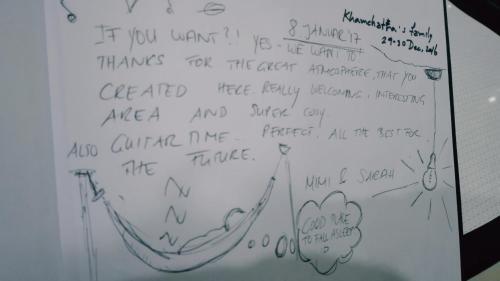 Khamchatka's family
29-30 Dec, 2016
8 JANUAR '17
IF YOU WANT?! YES - WE WANT TO!
THANKS FOR THE GREAT ATMOSPHERE, THAT YOU
CREATED HERE. REALLY WELCOMING, INTERESTING
AREA AND SUPER COSY.
ALSO GUITAR TIME - PERFECT! ALL THE BEST FOR
THE FUTURE.
MIMI & SARAH
GOOD PLACE
TO FALL ASLEEP
:D